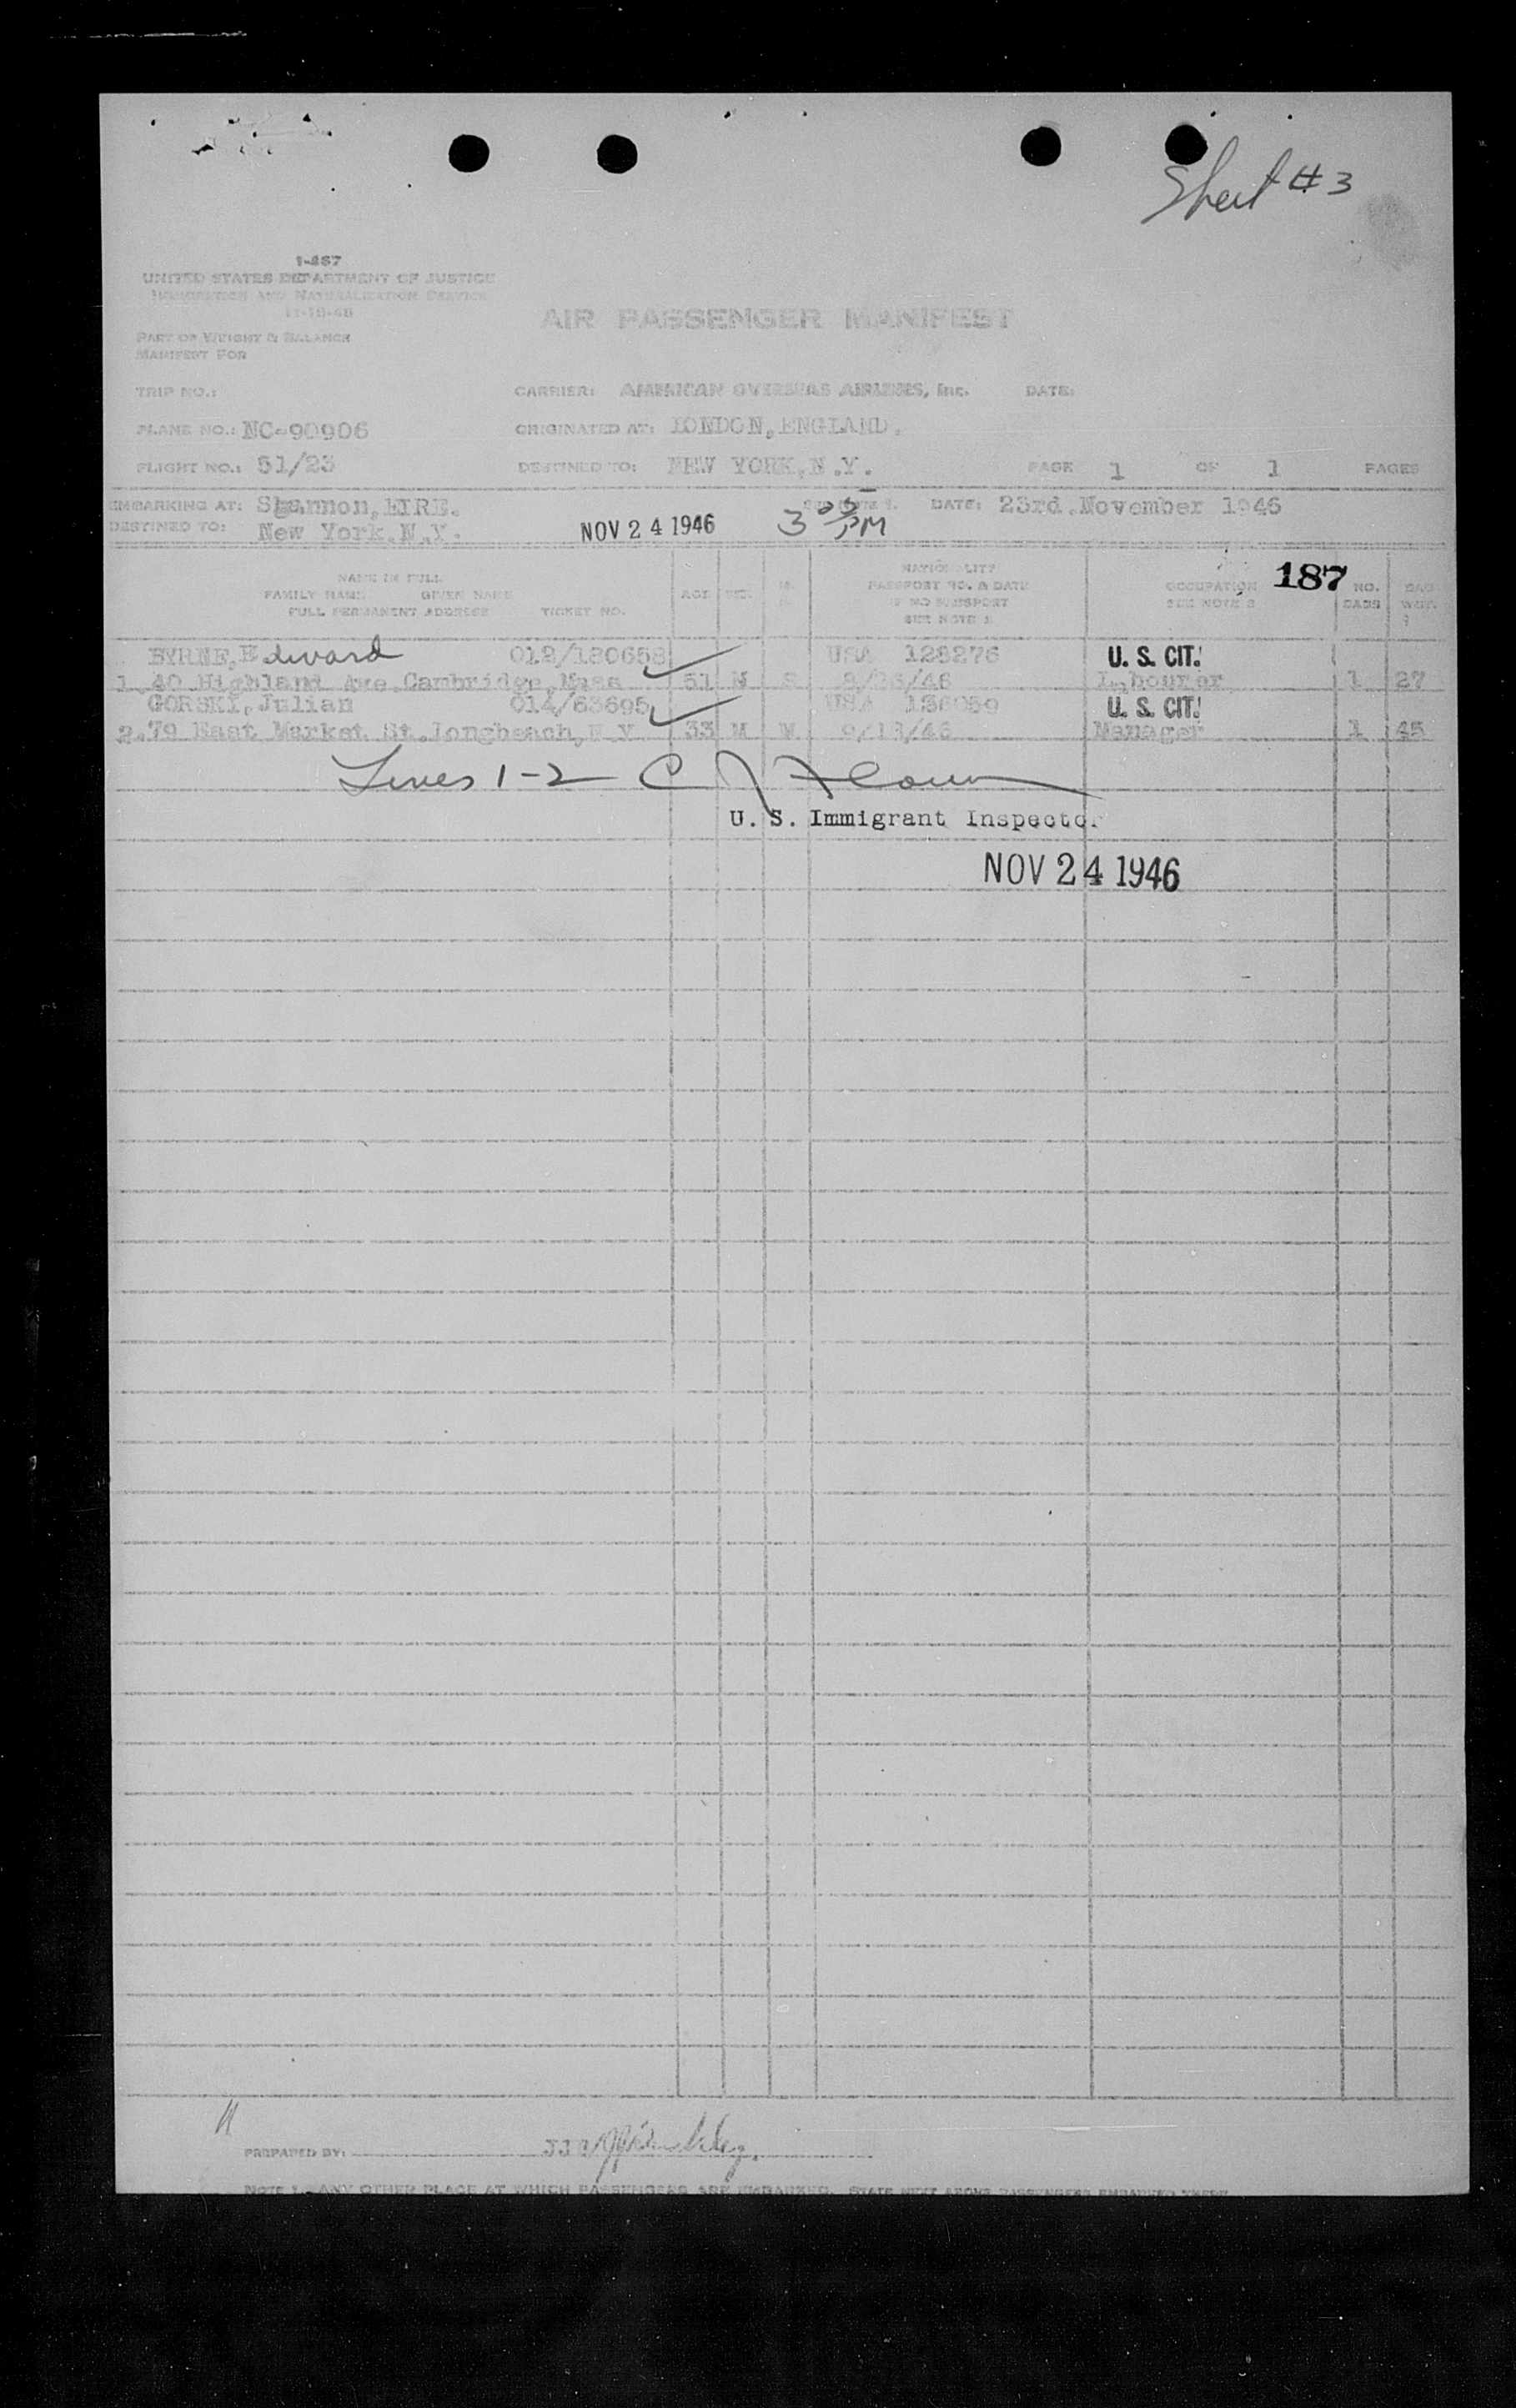 Sheet #3
I-487
UNITED STATES DEPARTMENT OF JUSTICE
IMMIGRATION AND NATURALIZATION SERVICE
AIR PASSENGER MANIFEST
PART OF WEIGHT & BALANCE
MANIFEST FOR
TRIP NO.: CARRIER: AMERICAN OVERSEAS AIRLINES, Inc. DATE:
PLANE NO.: NC-90906 ORIGINATED AT: LONDON, ENGLAND.
FLIGHT NO.: 51/23 DESTINED TO: NEW YORK, N.Y. PAGE 1 OF 1 PAGES
EMBARKING AT: Shannon, EIRE. SEE NOTE 1. DATE: 23rd. November 1946
DESTINED TO: New York, N.Y. NOV 24 1946 3 05 PM
NAME IN FULL
FAMILY NAME GIVEN NAME
FULL PERMANENT ADDRESS TICKET NO.
AGE SEX
NATIONALITY
PASSPORT NO. & DATE
IF NO PASSPORT
SEE NOTE 2
OCCUPATION
SEE NOTE 3
187
NO. BAGS
BAG WGT.
BYRNE, Edward 012/180658 USA 128276 U. S. CIT.
1. 40 Highland Ave. Cambridge, Mass 51 M S 8/26/46 Labourer 1 27
GORSKI, Julian 014/63695 USA 136059 U. S. CIT.
2. 79 East Market St. Longbeach, N.Y. 33 M M 9/18/46 Manager 1 45
Lines 1-2
U. S. Immigrant Inspector
NOV 24 1946
PREPARED BY:
NOTE 1. ANY OTHER PLACE AT WHICH PASSENGERS ARE EMBARKED, STATE NEXT ABOVE PASSENGERS EMBARKED THERE